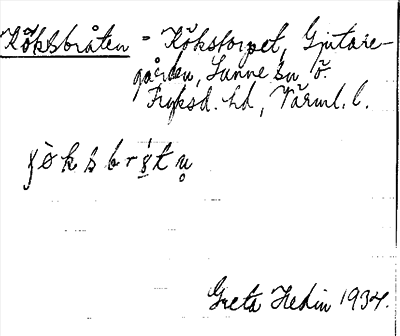 Köksbråten = Kökstorpet, Gjutare-
gården, Sunne sn ö.
Fryksd. hd, Värml. l.
Greta Hedin 1934.